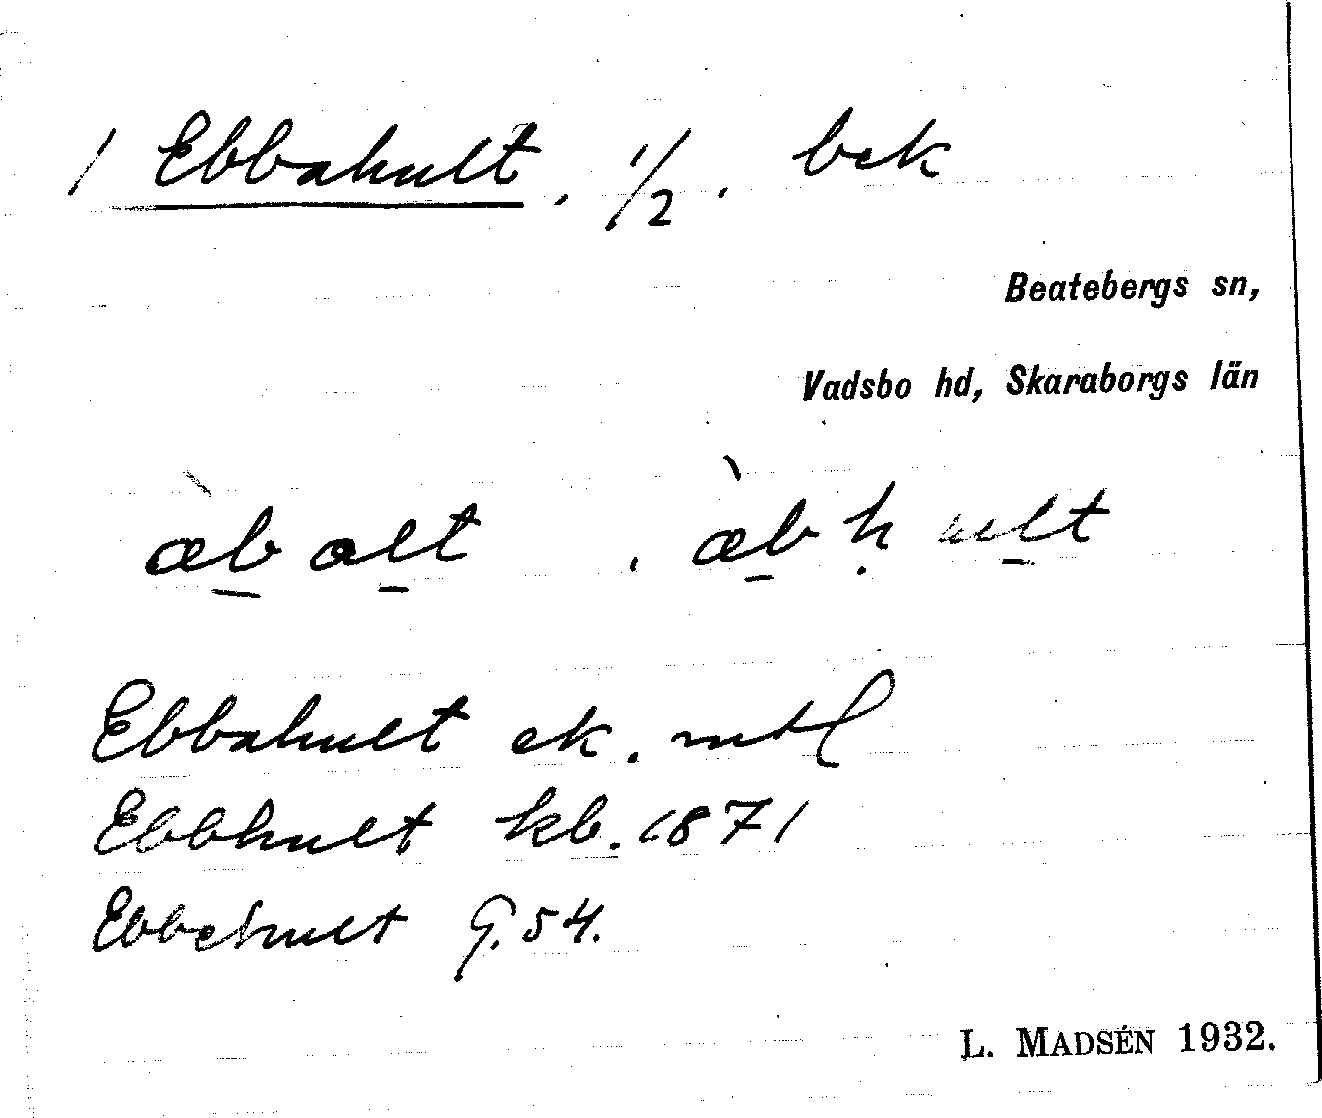 / Ebbahult. 1/2. bek
Beatebergs sn,
Vadsbo hd, Skaraborgs län
æ̀b̲al̲t . æ̀b̲ḥul̲t
Ebbahult ek. mtl
Ebbhult kb. 1871
Ebbehult G. 54.
L. MADSÉN 1932.